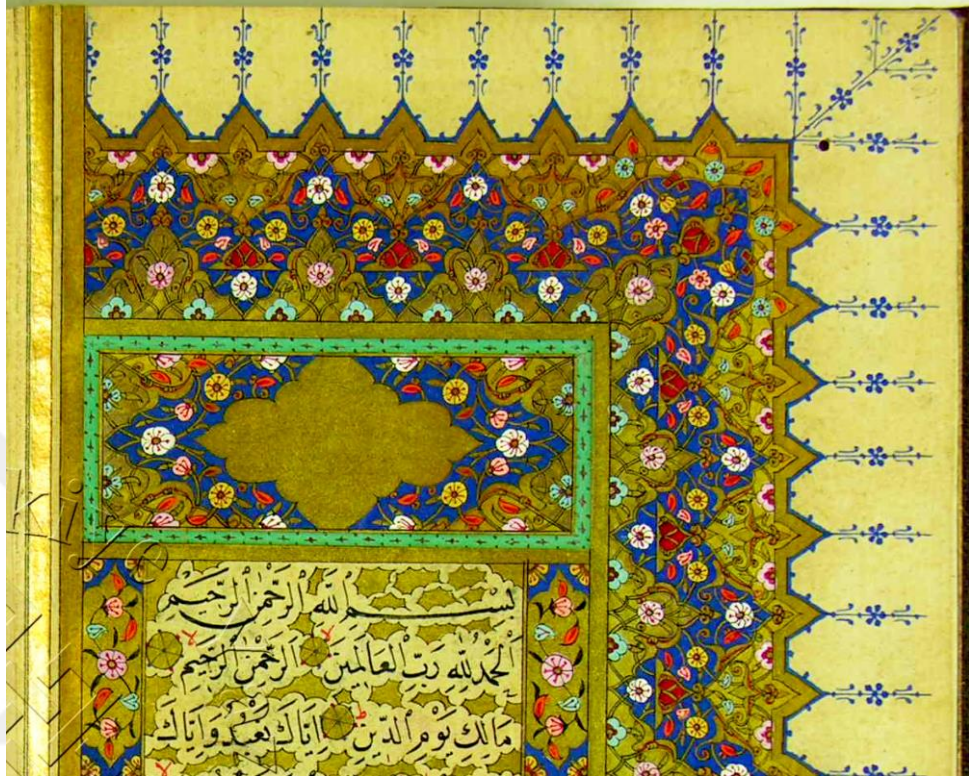 بِسْمِ اللّٰهِ الرَّحْمٰنِ الرَّحِيمِ
اَلْحَمْدُ لِلّٰهِ رَبِّ الْعَالَمِينَ لا اَلرَّحْمٰنِ الرَّحِيمِ لا
مَالِكِ يَوْمِ الدِّينِ ط اِيَّاكَ نَعْبُدُ وَاِيَّاكَ